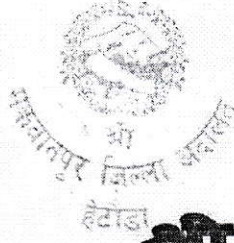 श्री
मकवानपुर जिल्ला अदालत
हेटौडा